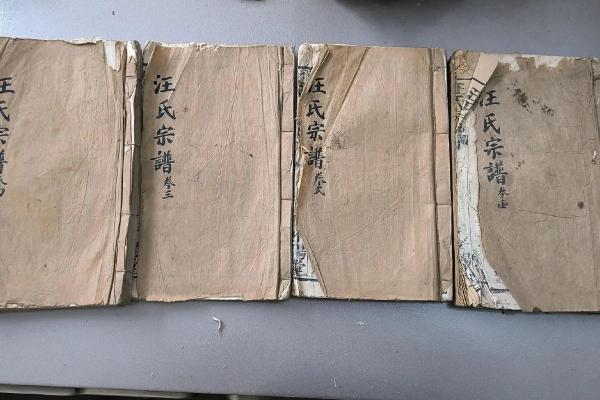 汪氏宗譜
汪氏宗譜卷三
汪氏宗譜卷弍
汪氏宗譜卷